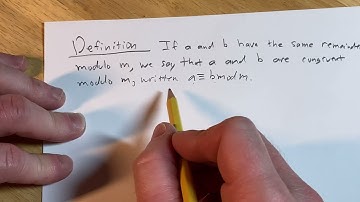 Definition If a and b have the same remainder
modulo m, we say that a and b are congruent
modulo m, written a ≡ b mod m.